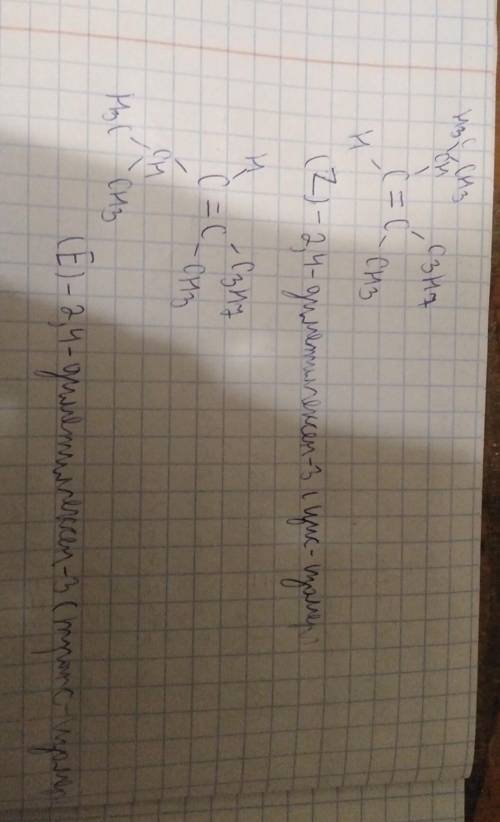 H₃C CH₃
CH C₃H₇
C=C
H CH₃
(Z)-2,4-диметилгексен-3 (цис-изомер)
H C₃H₇
C=C
CH CH₃
H₃C CH₃
(E)-2,4-диметилгексен-3 (транс-изомер